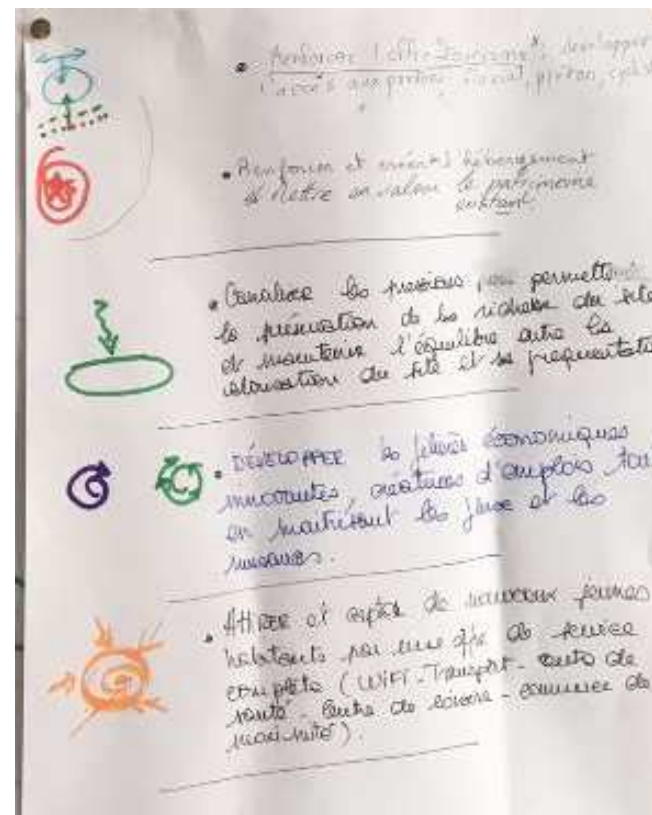 • Renforcer l'offre tourisme*, développer
l'accès
piéton, cycl
• Renforcer et l'hébergement
et Mettre en valeur le patrimoine
existant
• Canaliser les pressions pour permettre
la préservation de les richesse du site
et maintenir l'équilibre entre la
valorisation du site et sa fréquentatio
• DÉVELOPPER les filières économiques
innovantes, créatrices d'emplois tou
en maitrisant les flux et les
nuisances.
• ATTIRER et capter de nouveaux jeunes
habitants par une offre de service
complète (WIFI - Transport - de
santé - Centre de loisirs - commerce de
proximité).